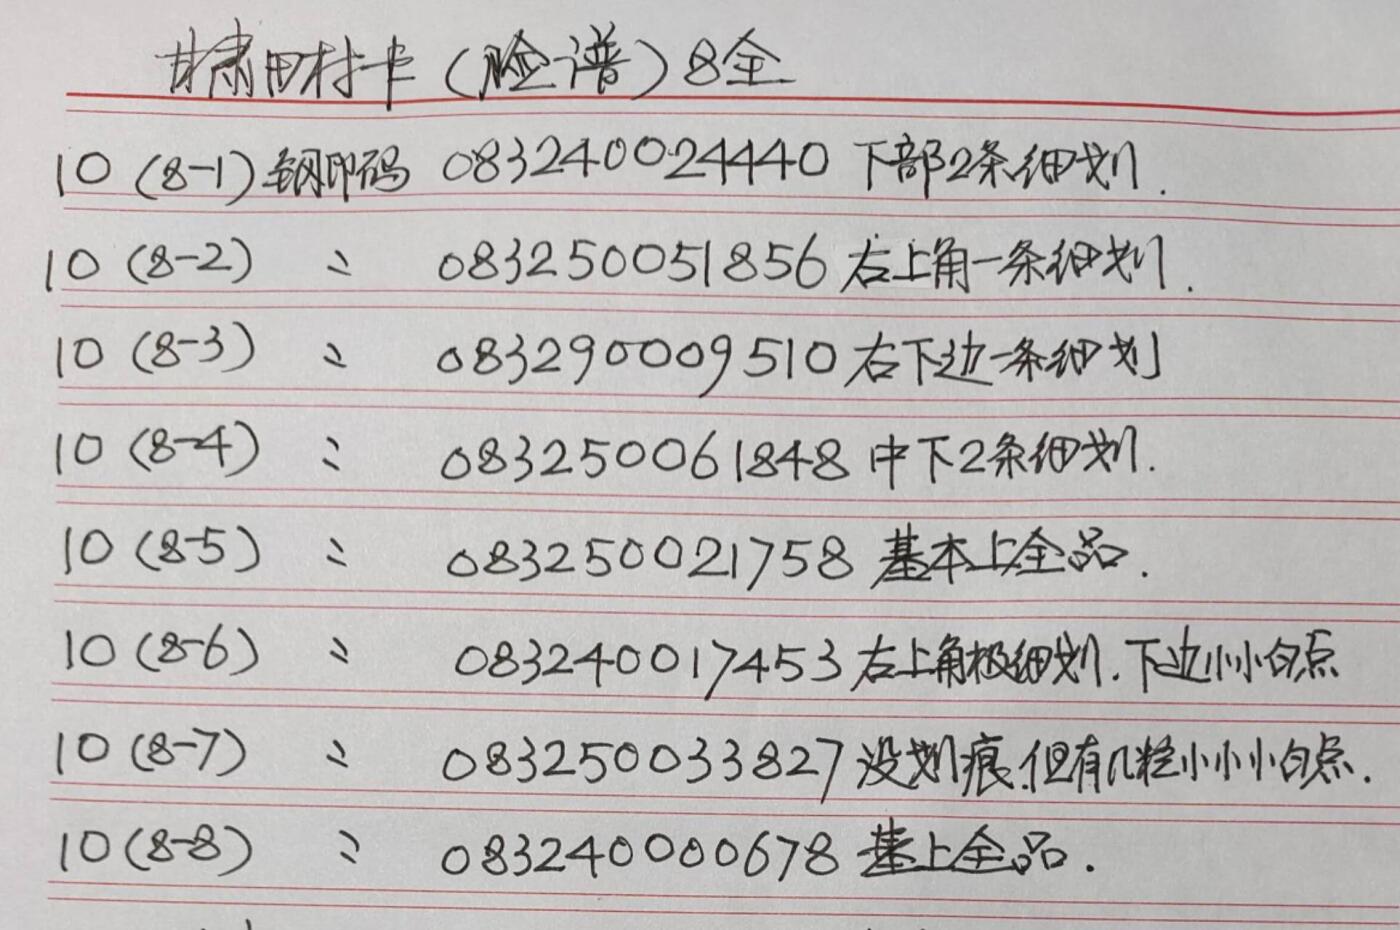 甘肃田村卡（脸谱）8全
10（8-1）钢印码 083240024440 下部2条细划.
10（8-2） 〃 083250051856 右上角一条细划.
10（8-3） 〃 083290009510 右下边一条细划
10（8-4） 〃 083250061848 中下2条细划.
10（8-5） 〃 083250021758 基本上全品.
10（8-6） 〃 083240017453 右上角极细划.下边小小白点
10（8-7） 〃 083250033827 没划痕.但有几粒小小小白点.
10（8-8） 〃 083240000678 基上全品.